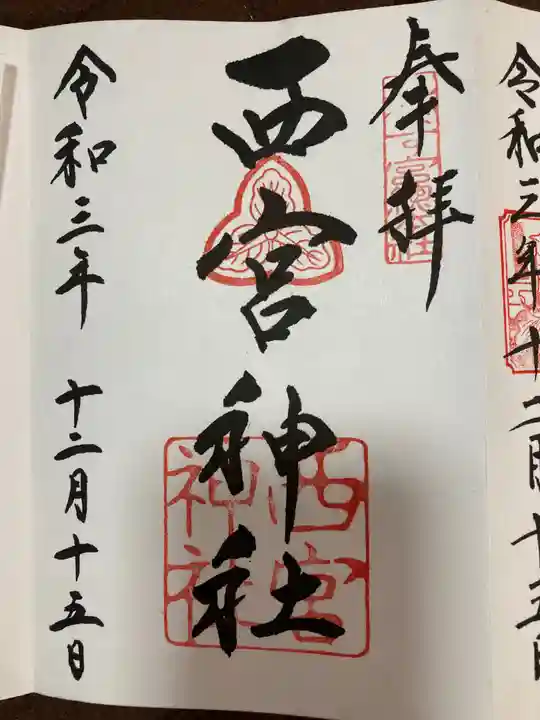 令和三年十二月十五日
奉拝
西宮神社
西宮
神社
令和三年 十二月十五日